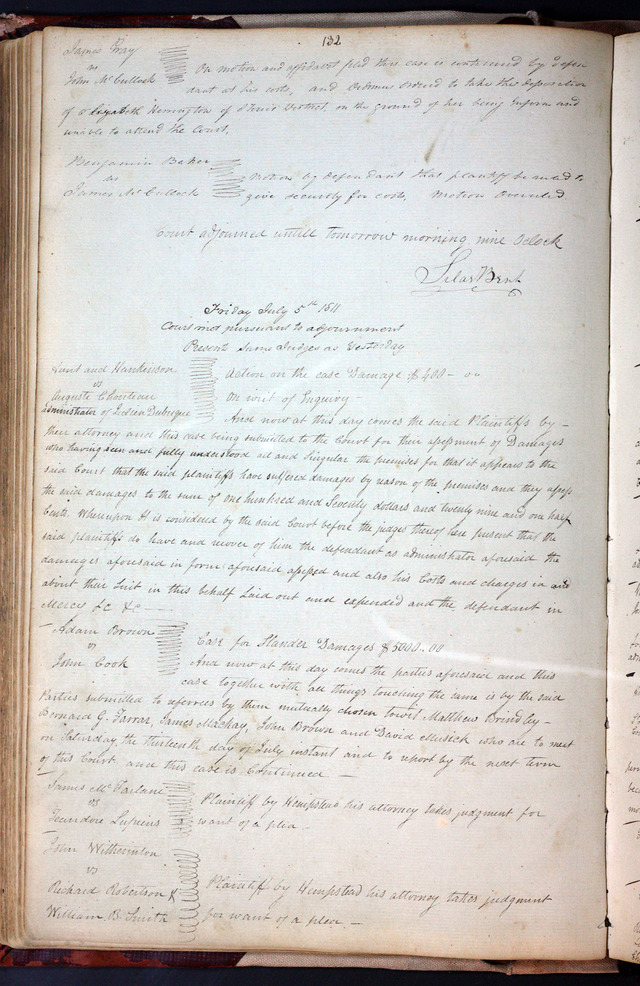 132
James Gray
vs
John McCullock
On motion and affidavit filed this case is continued by Defen
dant at his costs, and Dedimus ordered to take the deposition
of Elizabeth Herrington of District, on the ground of her being infirm and
unable to attend the Court.
Benjamin Baker
vs
James McCullock
Motion by defendant that plaintiff be ruled to
give security for costs. Motion Overruled
Court adjourned untill tomorrow morning nine Oclock
Silas Bent
Friday July 5th 1811
Court met pursuant to adjournment
Present same Judges as Yesterday
Hunt and Hankinson
vs
Auguste Chouteau
administrator of Julien Dubuque
Action on the case Damage $400 - 00
On writ of Inquiry -
And now at this day comes the said Plaintiffs by -
their attorney and this case being submitted to the Court for their assessment of Damages
who having seen and fully understood all and singular the premises for that it appears to the
said Court that the said plaintiffs have suffered damages by reason of the premises and they assess
the said damages to the sum of one hundred and seventy dollars and twenty nine and one half
Cents. Whereupon it is considered by the said Court before the judges thereof here present that the
said plaintiffs do have and recover of him the defendant as administrator aforesaid the
damages aforesaid in form aforesaid assessed and also his Costs and charges in and
about their Suit in this behalf Laid out and expended and the defendant in
Mercy &c &c
Adam Brown
vs
John Cook
Case for Slander Damages $5000.00
And now at this day comes the parties aforesaid and this
case together with all things touching the same is by the said
Parties submitted to referees by them mutually chosen towit Matthew Brindley -
Bernard G. Farrar, James Mackay, John Brown and David Musick who are to meet
on Saturday the thirteenth day of July instant and to report by the next term
of this Court and this case is Continued -
James McFarlane
vs
Plaintiff by Hempstead his attorney takes judgment for
want of a plea -
John Witherinton
vs
Richard Robertson &
William B. Smith
Plaintiff by Hempstead his attorney takes judgment
for want of a plea -